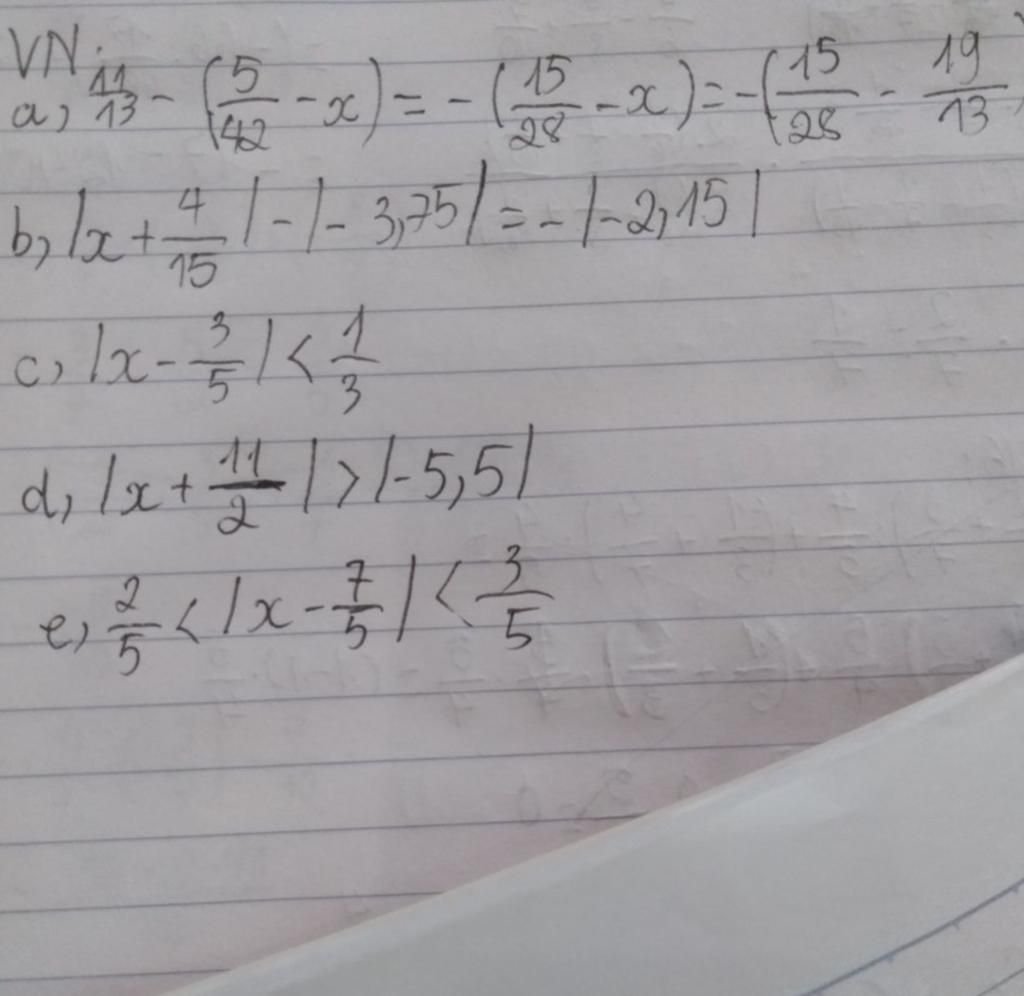 VN:
a, 11/13 - (5/42 - x) = -(15/28 - x) = -(15/28 - 19/13)
b, |x + 4/15| - |-3,75| = -|-2,15|
c, |x - 3/5| < 1/3
d, |x + 11/2| > |-5,5|
e, 2/5 < |x - 7/5| < 3/5